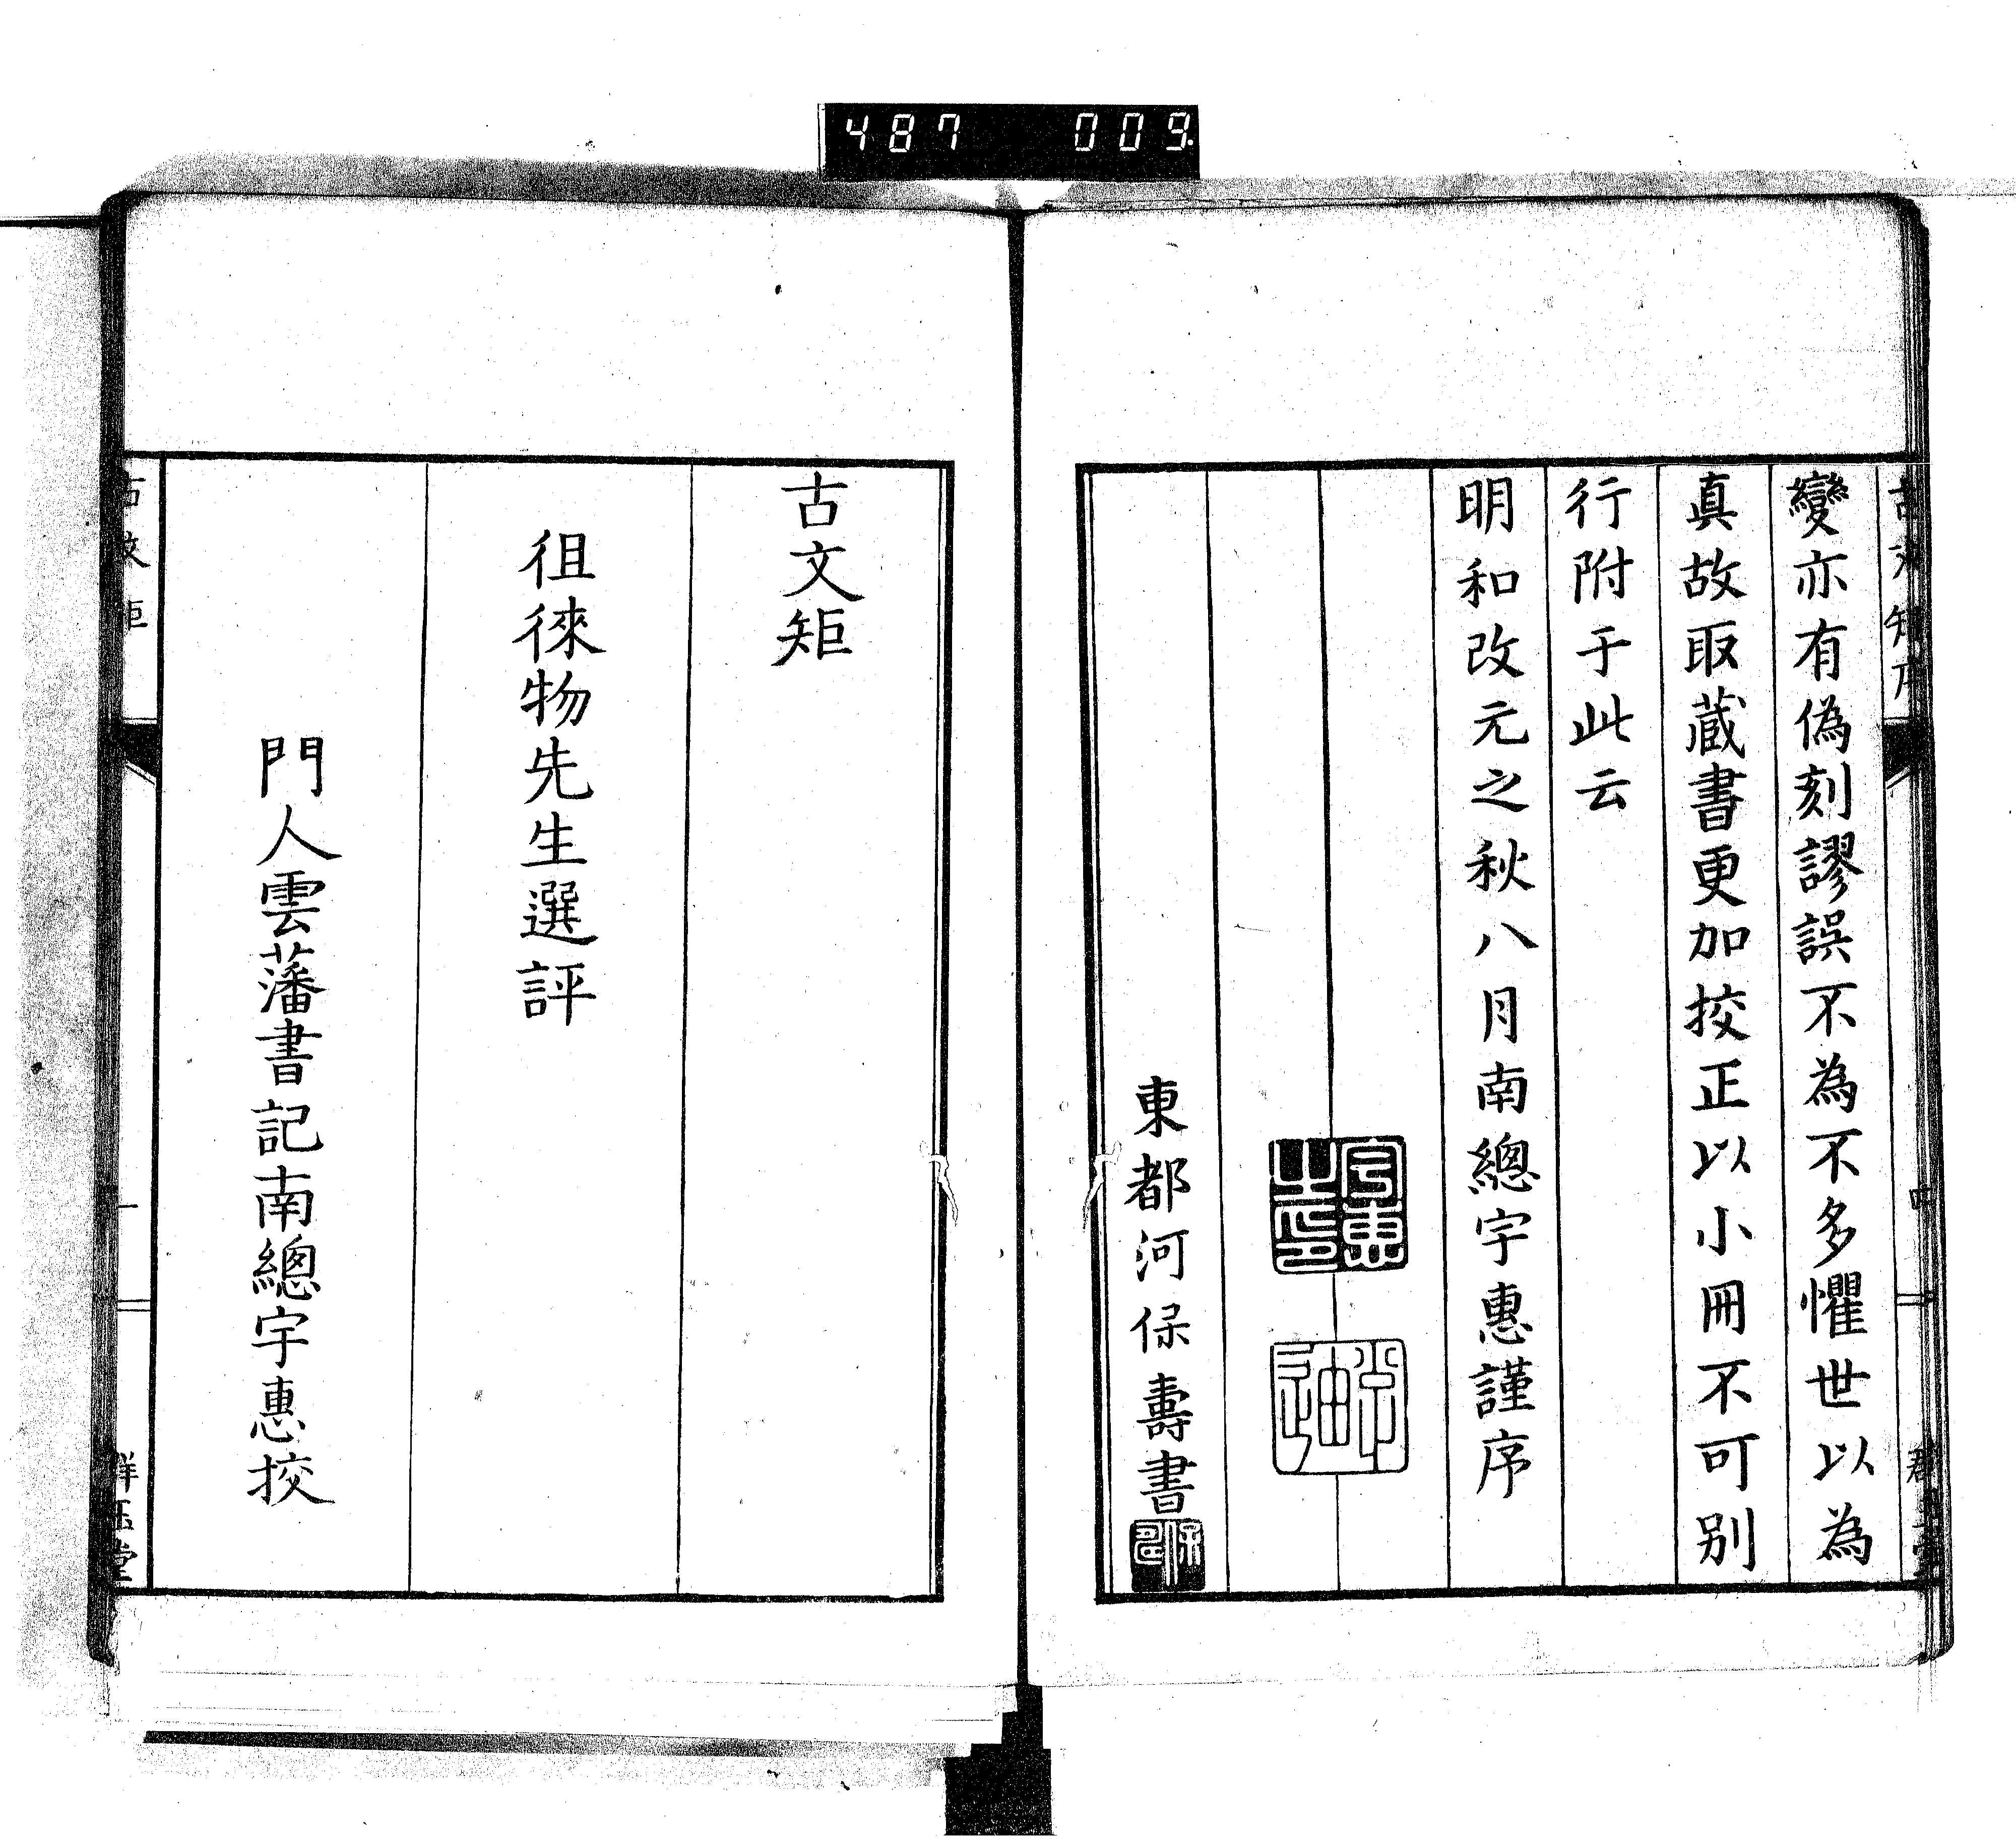 487 009
變亦有偽刻謬誤不為不多懼世以為
真故取蔵書更加挍正以小冊不可別
行附于此云
明和改元之秋八月南總宇惠謹序
宇惠之印
東都河保壽書
古文矩
徂徠物先生選評
門人雲藩書記南總宇惠挍